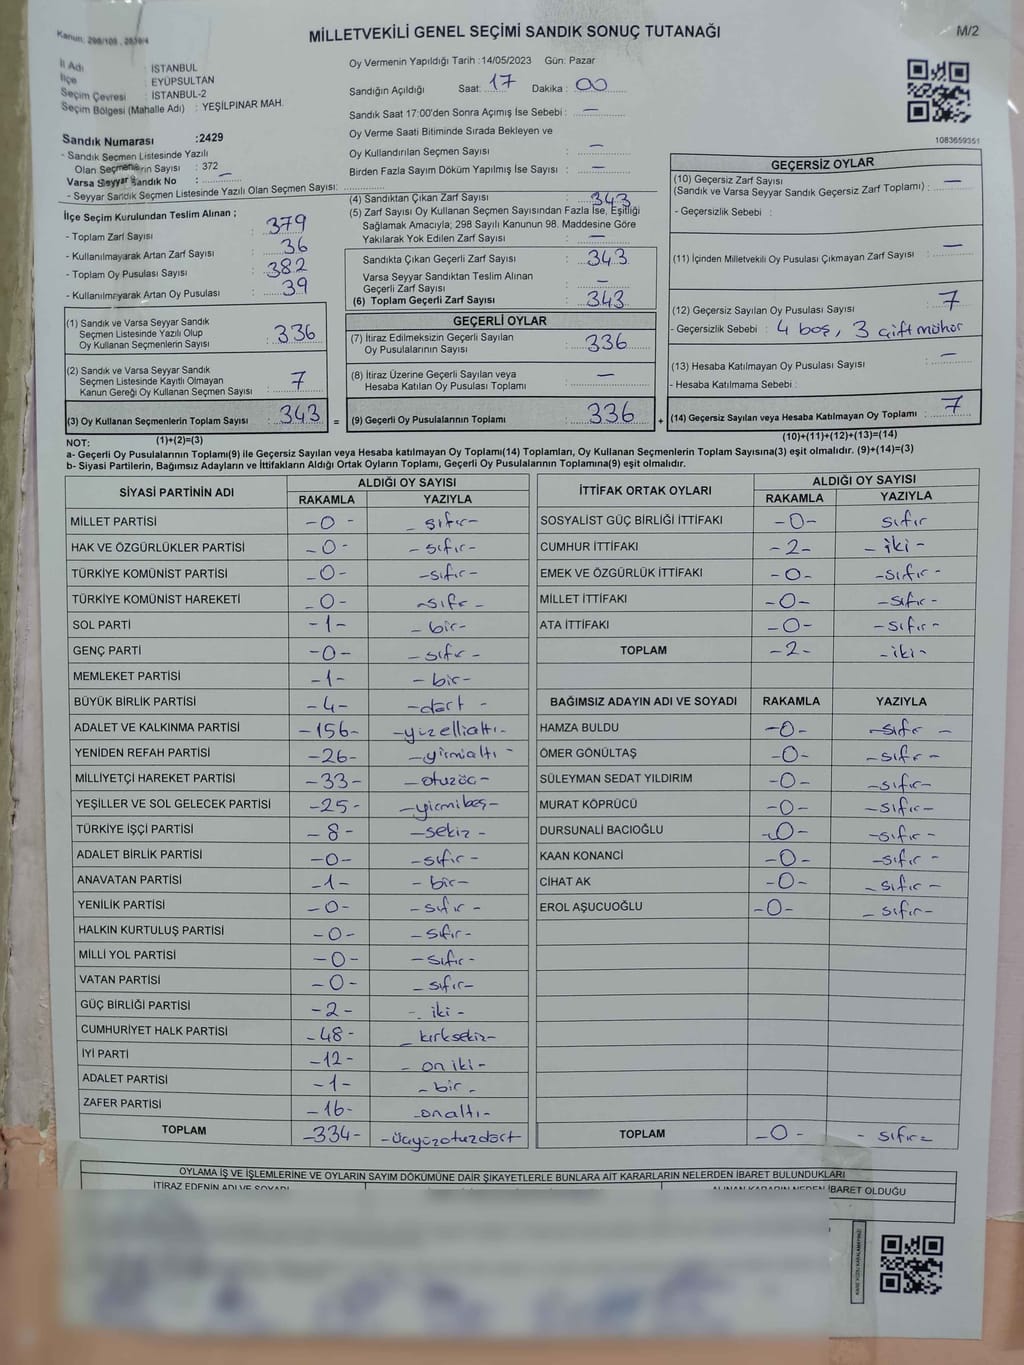 Kanun: 298/109, 2839/4
MİLLETVEKİLİ GENEL SEÇİMİ SANDIK SONUÇ TUTANAĞI
M/2
İl Adı : İSTANBUL
İlçe : EYÜPSULTAN
Seçim Çevresi : İSTANBUL-2
Seçim Bölgesi (Mahalle Adı) : YEŞİLPINAR MAH.
Sandık Numarası :2429
- Sandık Seçmen Listesinde Yazılı
Olan Seçmenlerin Sayısı : 372
Varsa Seyyar Sandık No : —
- Seyyar Sandık Seçmen Listesinde Yazılı Olan Seçmen Sayısı:
Oy Vermenin Yapıldığı Tarih :14/05/2023 Gün: Pazar
Sandığın Açıldığı Saat: 17 Dakika : 00
Sandık Saat 17:00'den Sonra Açımış İse Sebebi : —
Oy Verme Saati Bitiminde Sırada Bekleyen ve
Oy Kullandırılan Seçmen Sayısı : —
Birden Fazla Sayım Döküm Yapılmış İse Sayısı : —
1083659351
İlçe Seçim Kurulundan Teslim Alınan ;
- Toplam Zarf Sayısı : 379
- Kullanılmayarak Artan Zarf Sayısı : 36
- Toplam Oy Pusulası Sayısı : 382
- Kullanılmayarak Artan Oy Pusulası : 39
(1) Sandık ve Varsa Seyyar Sandık
Seçmen Listesinde Yazılı Olup
Oy Kullanan Seçmenlerin Sayısı : 336
(2) Sandık ve Varsa Seyyar Sandık
Seçmen Listesinde Kayıtlı Olmayan
Kanun Gereği Oy Kullanan Seçmen Sayısı : 7
(3) Oy Kullanan Seçmenlerin Toplam Sayısı : 343 =
(4) Sandıktan Çıkan Zarf Sayısı : 343
(5) Zarf Sayısı Oy Kullanan Seçmen Sayısından Fazla İse, Eşitliği
Sağlamak Amacıyla; 298 Sayılı Kanunun 98. Maddesine Göre
Yakılarak Yok Edilen Zarf Sayısı : —
Sandıkta Çıkan Geçerli Zarf Sayısı : 343
Varsa Seyyar Sandıktan Teslim Alınan
Geçerli Zarf Sayısı : —
(6) Toplam Geçerli Zarf Sayısı : 343
GEÇERLİ OYLAR
(7) İtiraz Edilmeksizin Geçerli Sayılan
Oy Pusulalarının Sayısı : 336
(8) İtiraz Üzerine Geçerli Sayılan veya
Hesaba Katılan Oy Pusulası Toplamı : —
(9) Geçerli Oy Pusulalarının Toplamı : 336 +
GEÇERSİZ OYLAR
(10) Geçersiz Zarf Sayısı
(Sandık ve Varsa Seyyar Sandık Geçersiz Zarf Toplamı) : —
- Geçersizlik Sebebi :
(11) İçinden Milletvekili Oy Pusulası Çıkmayan Zarf Sayısı : —
(12) Geçersiz Sayılan Oy Pusulası Sayısı : 7
- Geçersizlik Sebebi : 4 boş, 3 çift mühür
(13) Hesaba Katılmayan Oy Pusulası Sayısı : —
- Hesaba Katılmama Sebebi :
(14) Geçersiz Sayılan veya Hesaba Katılmayan Oy Toplamı : 7
NOT: (1)+(2)=(3)
(10)+(11)+(12)+(13)=(14)
a- Geçerli Oy Pusulalarının Toplamı(9) ile Geçersiz Sayılan veya Hesaba katılmayan Oy Toplamı(14) Toplamları, Oy Kullanan Seçmenlerin Toplam Sayısına(3) eşit olmalıdır. (9)+(14)=(3)
b- Siyasi Partilerin, Bağımsız Adayların ve İttifakların Aldığı Ortak Oyların Toplamı, Geçerli Oy Pusulalarının Toplamına(9) eşit olmalıdır.
SİYASİ PARTİNİN ADI ALDIĞI OY SAYISI
RAKAMLA YAZIYLA
MİLLET PARTİSİ -0- -sıfır-
HAK VE ÖZGÜRLÜKLER PARTİSİ -0- -sıfır-
TÜRKİYE KOMÜNİST PARTİSİ -0- -sıfır-
TÜRKİYE KOMÜNİST HAREKETİ -0- -sıfır-
SOL PARTİ -1- -bir-
GENÇ PARTİ -0- -sıfır-
MEMLEKET PARTİSİ -1- -bir-
BÜYÜK BİRLİK PARTİSİ -4- -dört-
ADALET VE KALKINMA PARTİSİ -156- -yüzellialtı-
YENİDEN REFAH PARTİSİ -26- -yirmialtı-
MİLLİYETÇİ HAREKET PARTİSİ -33- -otuzüç-
YEŞİLLER VE SOL GELECEK PARTİSİ -25- -yirmibeş-
TÜRKİYE İŞÇİ PARTİSİ -8- -sekiz-
ADALET BİRLİK PARTİSİ -0- -sıfır-
ANAVATAN PARTİSİ -1- -bir-
YENİLİK PARTİSİ -0- -sıfır-
HALKIN KURTULUŞ PARTİSİ -0- -sıfır-
MİLLİ YOL PARTİSİ -0- -sıfır-
VATAN PARTİSİ -0- -sıfır-
GÜÇ BİRLİĞİ PARTİSİ -2- -iki-
CUMHURİYET HALK PARTİSİ -48- -kırksekiz-
İYİ PARTİ -12- -on iki-
ADALET PARTİSİ -1- -bir-
ZAFER PARTİSİ -16- -onaltı-
TOPLAM -334- -üçyüzotuzdört
İTTİFAK ORTAK OYLARI ALDIĞI OY SAYISI
RAKAMLA YAZIYLA
SOSYALİST GÜÇ BİRLİĞİ İTTİFAKI -0- sıfır
CUMHUR İTTİFAKI -2- -iki-
EMEK VE ÖZGÜRLÜK İTTİFAKI -0- -sıfır-
MİLLET İTTİFAKI -0- -sıfır-
ATA İTTİFAKI -0- -sıfır-
TOPLAM -2- -iki-
BAĞIMSIZ ADAYIN ADI VE SOYADI RAKAMLA YAZIYLA
HAMZA BULDU -0- -sıfır-
ÖMER GÖNÜLTAŞ -0- -sıfır-
SÜLEYMAN SEDAT YILDIRIM -0- -sıfır-
MURAT KÖPRÜCÜ -0- -sıfır-
DURSUNALİ BACIOĞLU -0- -sıfır-
KAAN KONANCİ -0- -sıfır-
CİHAT AK -0- -sıfır-
EROL AŞUCUOĞLU -0- -sıfır-
TOPLAM -0- -sıfır-
OYLAMA İŞ VE İŞLEMLERİNE VE OYLARIN SAYIM DÖKÜMÜNE DAİR ŞİKAYETLERLE BUNLARA AİT KARARLARIN NELERDEN İBARET BULUNDUKLARI
İTİRAZ EDENİN ADI VE SOYADI
ALINAN KARARIN NEDEN İBARET OLDUĞU